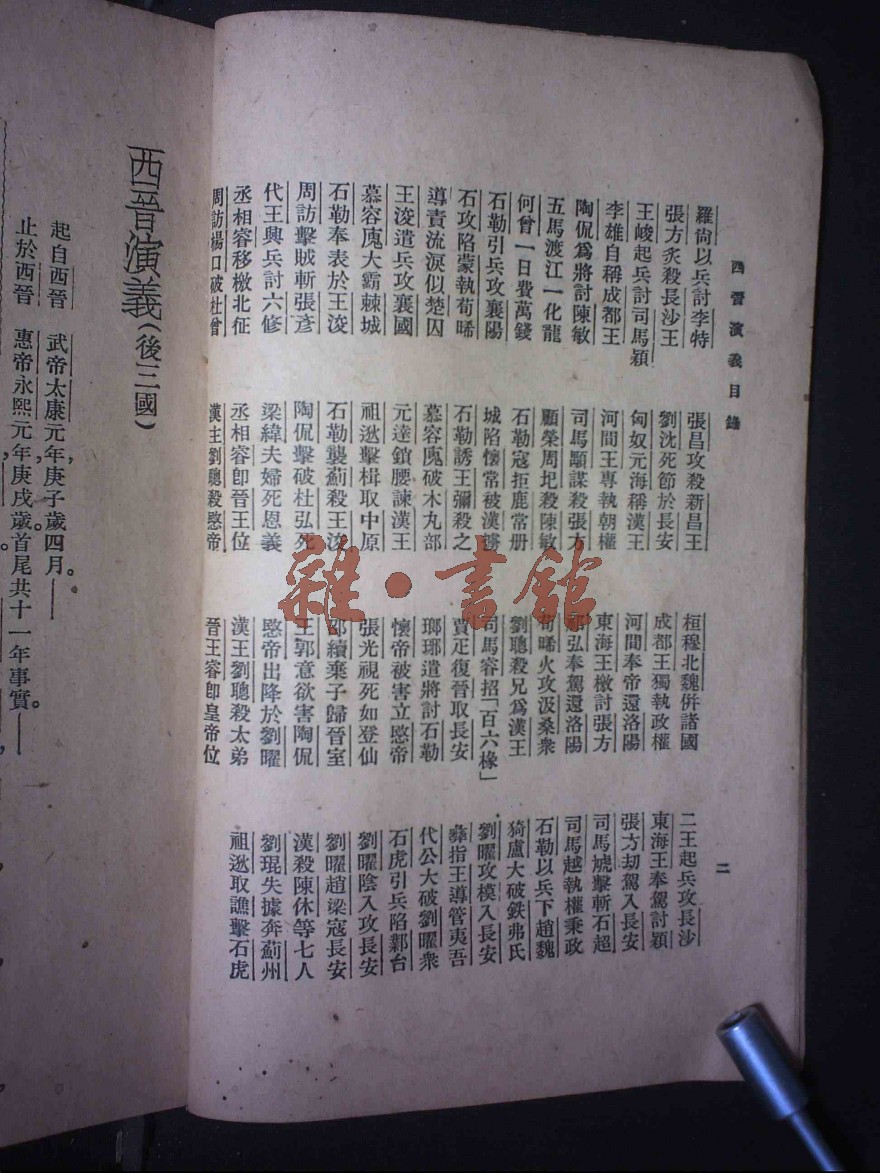 西晉演義目錄
二
羅尚以兵討李特 張昌攻殺新昌王 桓穆北魏併諸國 二王起兵攻長沙
張方炙殺長沙王 劉沈死節於長安 成都王獨執政權 東海王奉駕討穎
王峻起兵討司馬穎 匈奴元海稱漢王 河間奉帝還洛陽 張方劫駕入長安
李雄自稱成都王 河間王專執朝權 東海王檄討張方 司馬虓擊斬石超
陶侃爲將討陳敏 司馬顒謀殺張方 弘奉駕還洛陽 司馬越執權秉政
五馬渡江一化龍 顧榮周玘殺陳敏 荀晞火攻汲桑衆 石勒以兵下趙魏
何曾一日費萬錢 石勒寇拒鹿常册 劉聰殺兄爲漢王 猗盧大破鉄弗氏
石勒引兵攻襄陽 城陷懷常被漢擄 司馬睿招「百六椽」 劉曜攻模入長安
石攻陷蒙執荀晞 石勒誘王彌殺之 賈疋復晉取長安 彝指王導管夷吾
導責流淚似楚囚 慕容廆破木丸部 瑯琊遣將討石勒 代公大破劉曜衆
王浚遣兵攻襄國 元達鎖腰諫漢王 懷帝被害立愍帝 石虎引兵陷鄴台
慕容廆大霸棘城 祖逖擊楫取中原 張光視死如登仙 劉曜陰入攻長安
石勒奉表於王浚 石勒襲薊殺王浚 邵續棄子歸晉室 劉曜趙梁寇長安
周訪擊賊斬張彥 陶侃擊破杜弘死 王郭意欲害陶侃 漢殺陳休等七人
代王興兵討六修 梁緯夫婦死恩義 愍帝出降於劉曜 劉琨失據奔薊州
丞相容移檄北征 丞相睿卽晉王位 漢王劉聰殺太弟 祖逖取譙擊石虎
周訪楊口破杜曾 漢主劉聰殺愍帝 晉王睿卽皇帝位
西晉演義(後三國)
起自西晉 武帝太康元年,庚子歲四月。——
止於西晉 惠帝永熙元年,庚戌歲。首尾共十一年事實。——
雜·書館